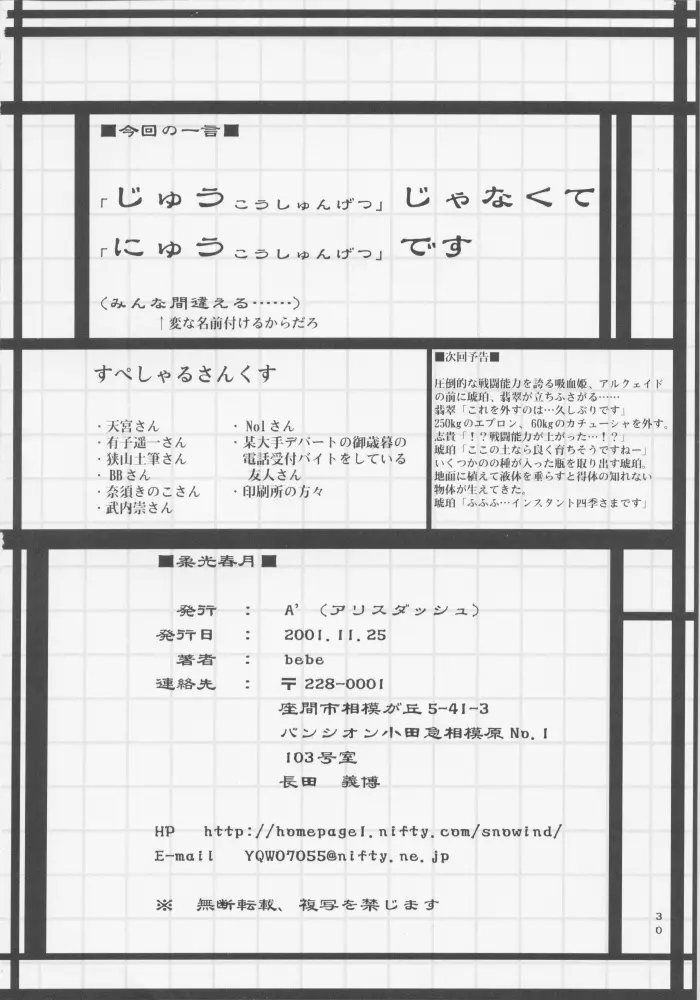 ■今回の一言■
「じゅうこうしゅんげつ」じゃなくて
「にゅうこうしゅんげつ」です
（みんな間違える……）
↑変な名前付けるからだろ
すぺしゃるさんくす
・天宮さん
・有子遥一さん
・狭山土筆さん
・BBさん
・奈須きのこさん
・武内崇さん
・No1さん
・某大手デパートの御歳暮の
電話受付バイトをしている
友人さん
・印刷所の方々
■次回予告■
圧倒的な戦闘能力を誇る吸血姫、アルクェイド
の前に琥珀、翡翠が立ちふさがる……
翡翠「これを外すのは…久しぶりです」
250kgのエプロン、60kgのカチューシャを外す。
志貴「！？戦闘能力が上がった…！？」
琥珀「ここの土なら良く育ちそうですねー」
いくつかのの種が入った瓶を取り出す琥珀。
地面に植えて液体を垂らすと得体の知れない
物体が生えてきた。
琥珀「ふふふ…インスタント四季さまです」
■柔光春月■
発行 ： A'（アリスダッシュ）
発行日 ： 2001.11.25
著者 ： bebe
連絡先 ： 〒228-0001
座間市相模が丘5-41-3
パンシオン小田急相模原No.1
103号室
長田 義博
HP http://homepage1.nifty.com/snowind/
E-mail YQW07055@nifty.ne.jp
※ 無断転載、複写を禁じます
30